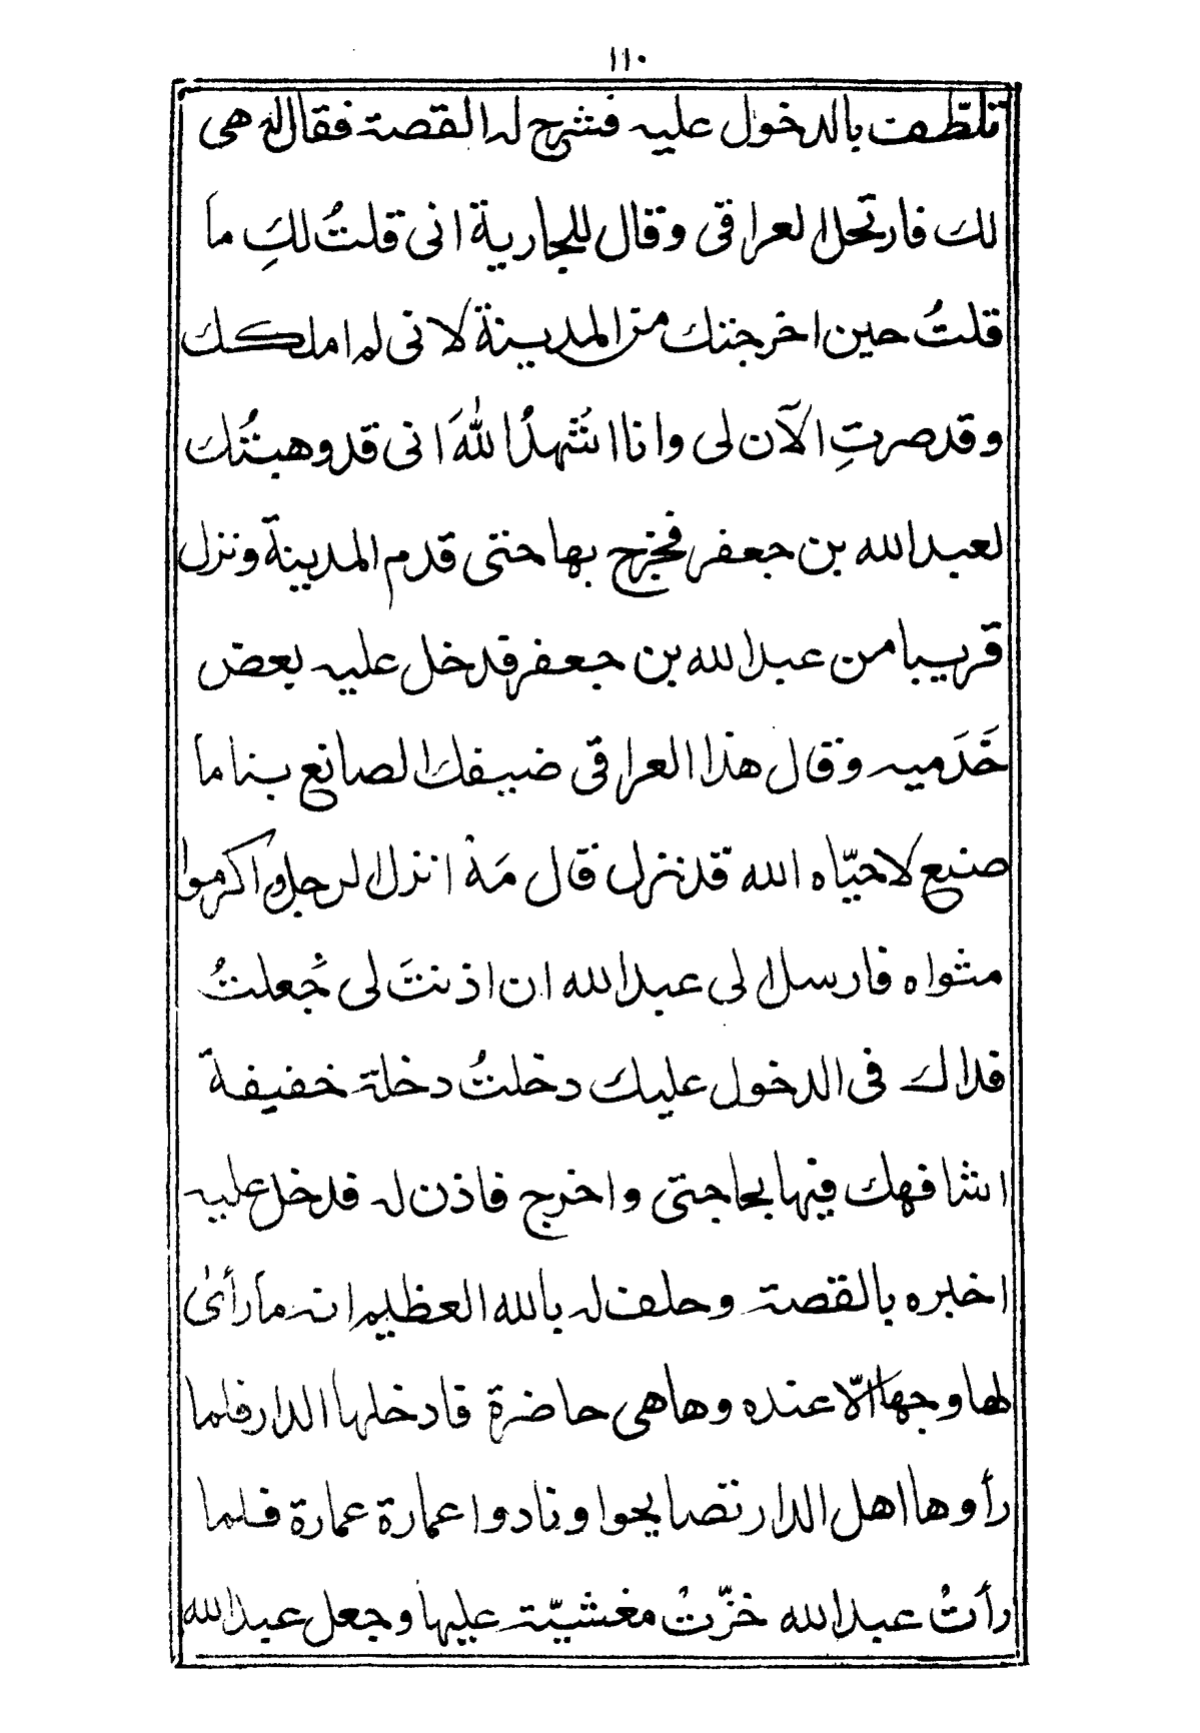 ١١٠
تلطّف بالدخول عليه فشرح له القصة فقال له هى
لك فارتحل العراقى وقال للجارية انى قلتُ لكِ ما
قلتُ حين اخرجتك من المدينة لانى لم املكك
وقد صرتِ الآن لى وانا اشهدُ اللهَ انى قد وهبتُك
لعبد الله بن جعفر فخرج بها حتى قدم المدينة ونزل
قريبا من عبد الله بن جعفر فدخل عليه بعض
خَدَميه وقال هذا العراقى ضيفك الصانع بنا ما
صنع لا حيّاه الله قد نزل قال مَهْ انزل الرجل واكرموا
مثواه فارسل الى عبد الله ان اذنتَ لى جُعلتُ
فداك فى الدخول عليك دخلتُ دخلة خفيفة
اشافهك فيها بحاجتى واخرج فاذن له فدخل عليه
اخبره بالقصة وحلف له بالله العظيم انه ما رأىٰ
لها وجها الّا عنده وها هى حاضرة فادخلها الدار فلما
رأوها اهل الدار تصايحوا ونادوا عمارة عمارة فلما
رأتْ عبد الله خرّتْ مغشيّة عليها وجعل عبد الله